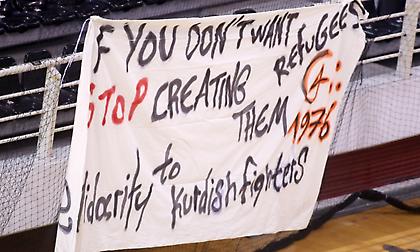 F YOU DON'T WANT
REFUGEES
STOP CREATING
THEM G:
1976
Solidarity to
Kurdish fighters